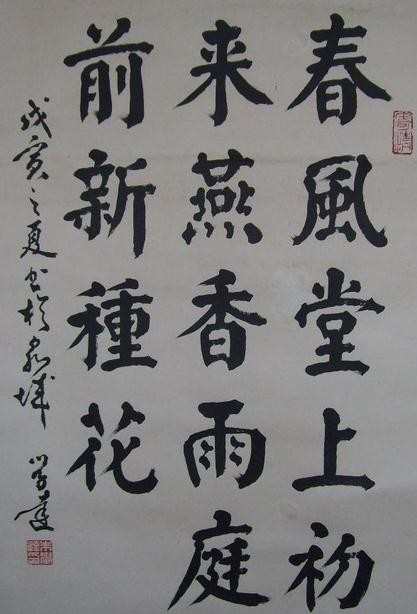 春風堂上初
来燕香雨庭
前新種花
戊寅之夏书于泉城